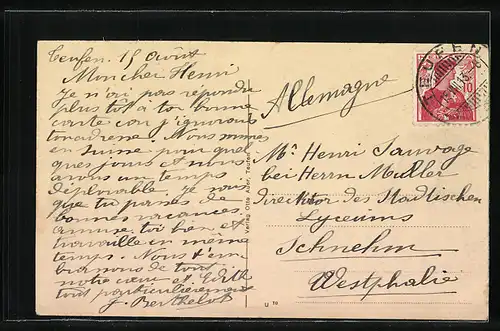 Teufen. 15 Août
Mon cher Henri
Je n'ai pas repondre
plus tôt a ta bonne
carte car j'ignorais
adresse. Nous sommes
en Suisse pour quel
ques jours et nous
avons un temps
déplorable, je vous
que tu passes de
bonnes vacances
amuse toi bien et
travaille en même
temps. Nous t'em
brassons de tout
notre cœur et Edith
tout particulièrement
J. Berthelot
Allemagne
TEUFEN
10
Mr Henri Sauvage
bei Herrn Müller
Direktor des Städtischen
Lyceums
Schnehm
Westphalie
Verlag Otto Teufen
U 10